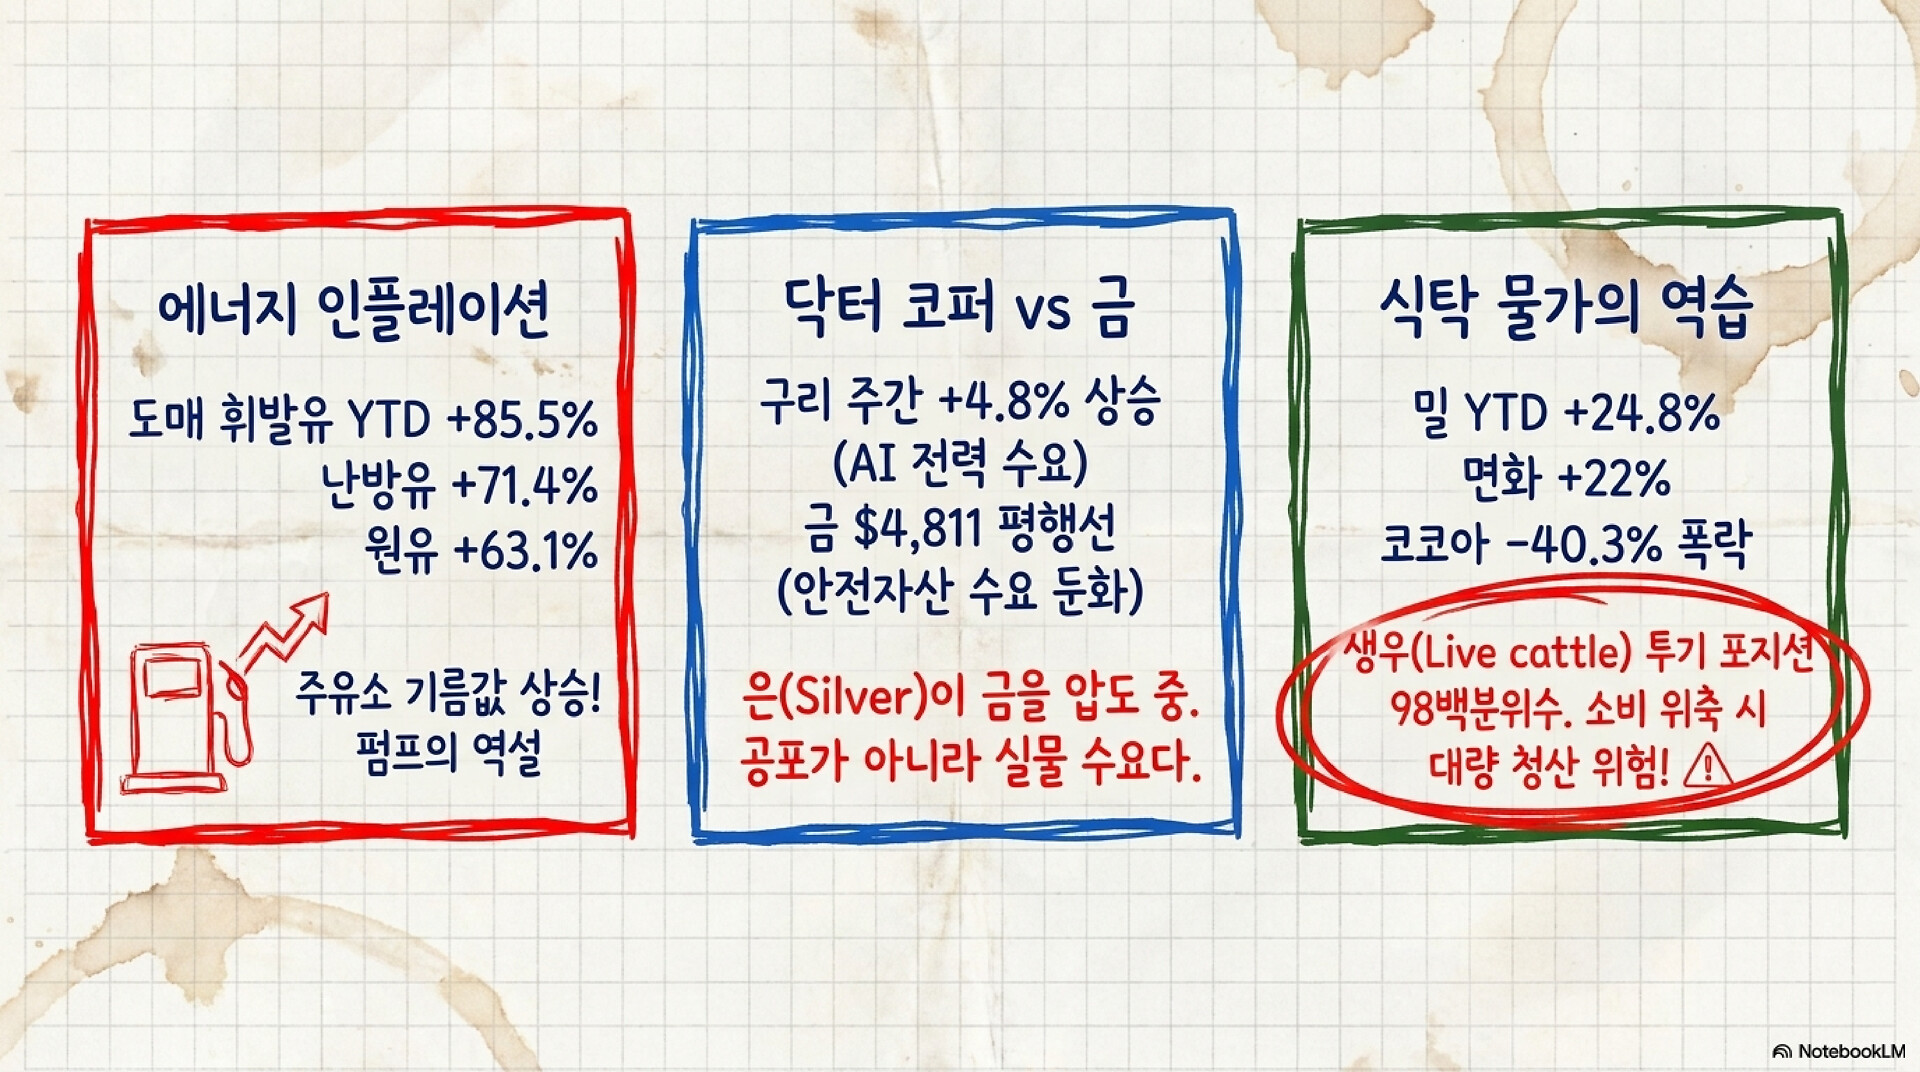 에너지 인플레이션
도매 휘발유 YTD +85.5%
난방유 +71.4%
원유 +63.1%
주유소 기름값 상승!
펌프의 역설
닥터 코퍼 vs 금
구리 주간 +4.8% 상승
(AI 전력 수요)
금 $4,811 평행선
(안전자산 수요 둔화)
은(Silver)이 금을 압도 중.
공포가 아니라 실물 수요다.
식탁 물가의 역습
밀 YTD +24.8%
면화 +22%
코코아 -40.3% 폭락
생우(Live cattle) 투기 포지션
98백분위수. 소비 위축 시
대량 청산 위험!
NotebookLM